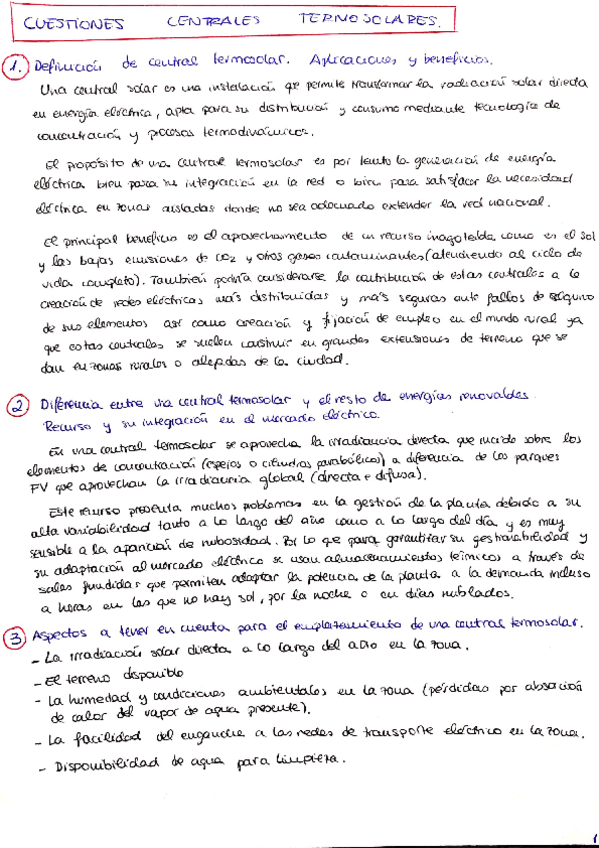 CUESTIONES CENTRALES TERMOSOLARES.
1. Definición de central termosolar. Aplicaciones y beneficios.
Una central solar es una instalación que permite transformar la radiación solar directa
en energía eléctrica, apta para su distribución y consumo mediante tecnología de
concentración y procesos termodinámicos.
El propósito de una central termosolar es por tanto la generación de energía
eléctrica bien para su integración en la red o bien para satisfacer la necesidad
eléctrica en zonas aisladas donde no sea adecuado extender la red nacional.
El principal beneficio es el aprovechamiento de un recurso inagotable como es el Sol
y las bajas emisiones de CO2 y otros gases contaminantes (atendiendo al ciclo de
vida completo). También podría considerarse la contribución de estas centrales a la
creación de redes eléctricas más distribuidas y más seguras ante fallos de alguno
de sus elementos así como creación y fijación de empleo en el mundo rural ya
que estas centrales se suelen construir en grandes extensiones de terreno que se
dan en zonas rurales o alejadas de la ciudad.
2 Diferencia entre una central termosolar y el resto de energías renovables.
Recurso y su integración en el mercado eléctrico.
En una central termosolar se aprovecha la irradiancia directa que incide sobre los
elementos de concentración (espejos o cilindros parabólicos) a diferencia de los parques
FV que aprovechan la irradiancia global (directa + difusa).
Este recurso presenta muchos problemas en la gestión de la planta debido a su
alta variabilidad tanto a lo largo del año como a lo largo del día, y es muy
sensible a la aparición de nubosidad. Por lo que para garantizar su gestionabilidad y
su adaptación al mercado eléctrico se usan almacenamientos térmicos a través de
sales fundidas que permiten adaptar la potencia de la planta a la demanda incluso
a horas en las que no hay sol, por la noche o en días nublados.
3 Aspectos a tener en cuenta para el emplazamiento de una central termosolar.
- La irradiación solar directa a lo largo del año en la zona.
- El terreno disponible
- La humedad y condiciones ambientales en la zona (pérdidas por absorción
de calor del vapor de agua presente).
- La facilidad del enganche a las redes de transporte eléctrico en la zona.
- Disponibilidad de agua para limpieza.
1